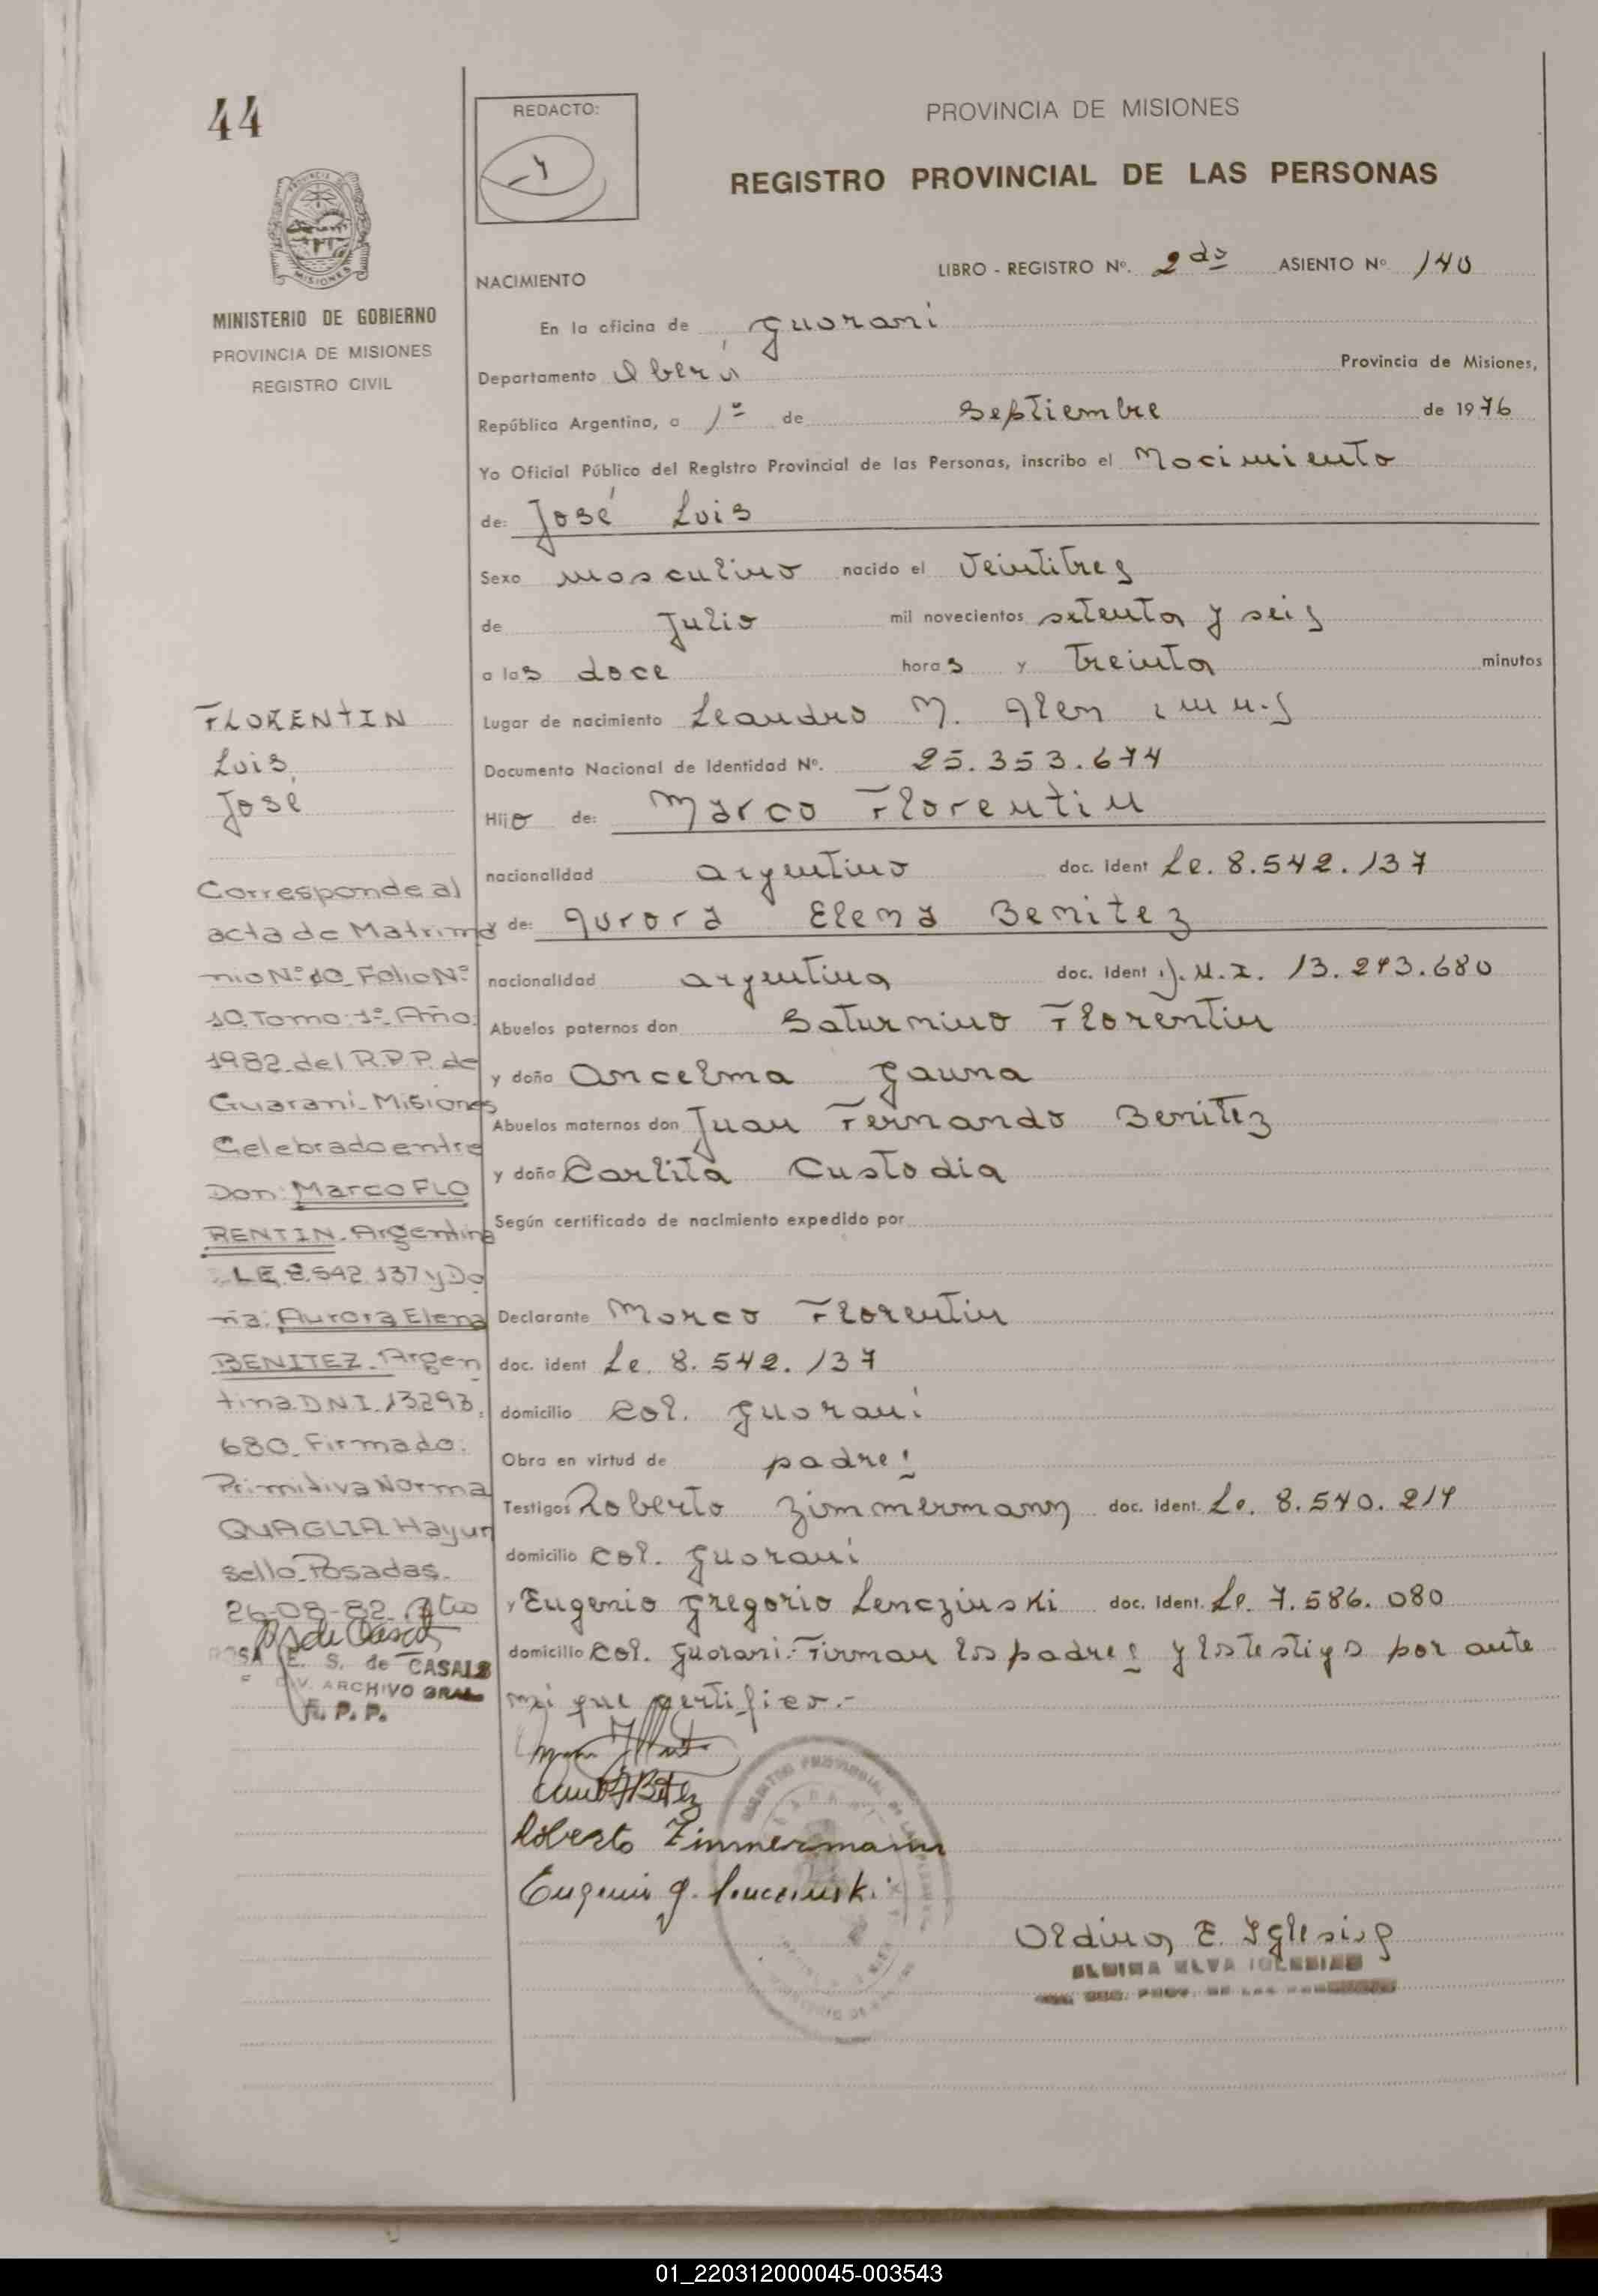 44
REDACTO:
PROVINCIA DE MISIONES
REGISTRO PROVINCIAL DE LAS PERSONAS
LIBRO - REGISTRO Nº. 2do ASIENTO Nº 140
NACIMIENTO
MINISTERIO DE GOBIERNO
PROVINCIA DE MISIONES
REGISTRO CIVIL
En la oficina de Guarani
Departamento Oberá Provincia de Misiones,
República Argentina, a 1º de Septiembre de 1976
Yo Oficial Público del Registro Provincial de las Personas, inscribo el Nacimiento
de: José Luis
Sexo masculino nacido el Veintitres
de Julio mil novecientos setenta y seis
a las doce horas y Treinta minutos
Lugar de nacimiento Leandro N. Alem
Documento Nacional de Identidad Nº. 25.353.674
Hijo de: Marco Florentin
nacionalidad argentino doc. Ident Le. 8.542.137
y de: Aurora Elena Benitez
nacionalidad argentina doc. Ident D.N.I. 13.293.680
Abuelos paternos don Saturnino Florentin
y doña Ancelma Gauna
Abuelos maternos don Juan Fernando Benitez
y doña Carlita Custodia
Según certificado de nacimiento expedido por
Declarante Marco Florentin
doc. ident Le. 8.542.137
domicilio Col. Guarani
Obra en virtud de padre.
Testigos Roberto Zimmermann doc. ident. Le. 8.540.214
domicilio Col. Guarani
y Eugenio Gregorio Lenczinski doc. Ident. Le. 7.586.080
domicilio Col. Guarani.- Firman los padres y los testigos por ante
mi que certifico.-
Roberto Zimmermann
Eugenio G. Lenczinski
Oldina E. Iglesias
FLORENTIN
Luis,
José
Corresponde al
acta de Matrimo
nio Nº 10 Folio Nº
10 Tomo: 1º Año:
1982 del R.P.P. de
Guaraní-Misiones
Celebrado entre
Don: Marco FLO
RENTIN-Argentino
LE 8.542.137 y Do
ña: Aurora Elena
BENITEZ-Argen
tina DNI 13293.
680-Firmado:
Primitiva Norma
QUAGLIA Hay un
sello-Posadas-
26-08-82
ROSA E. S. de CASALS
DIV. ARCHIVO GRAL
R. P. P.
01_220312000045-003543